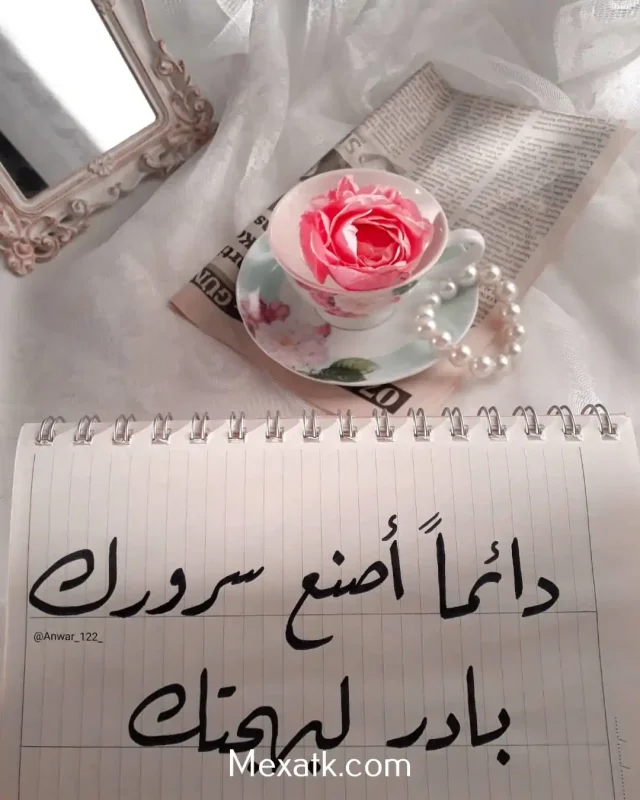 دائماً أصنع سرورك
@Anwar_122_
بادر لبهجتك
Mexatk.com